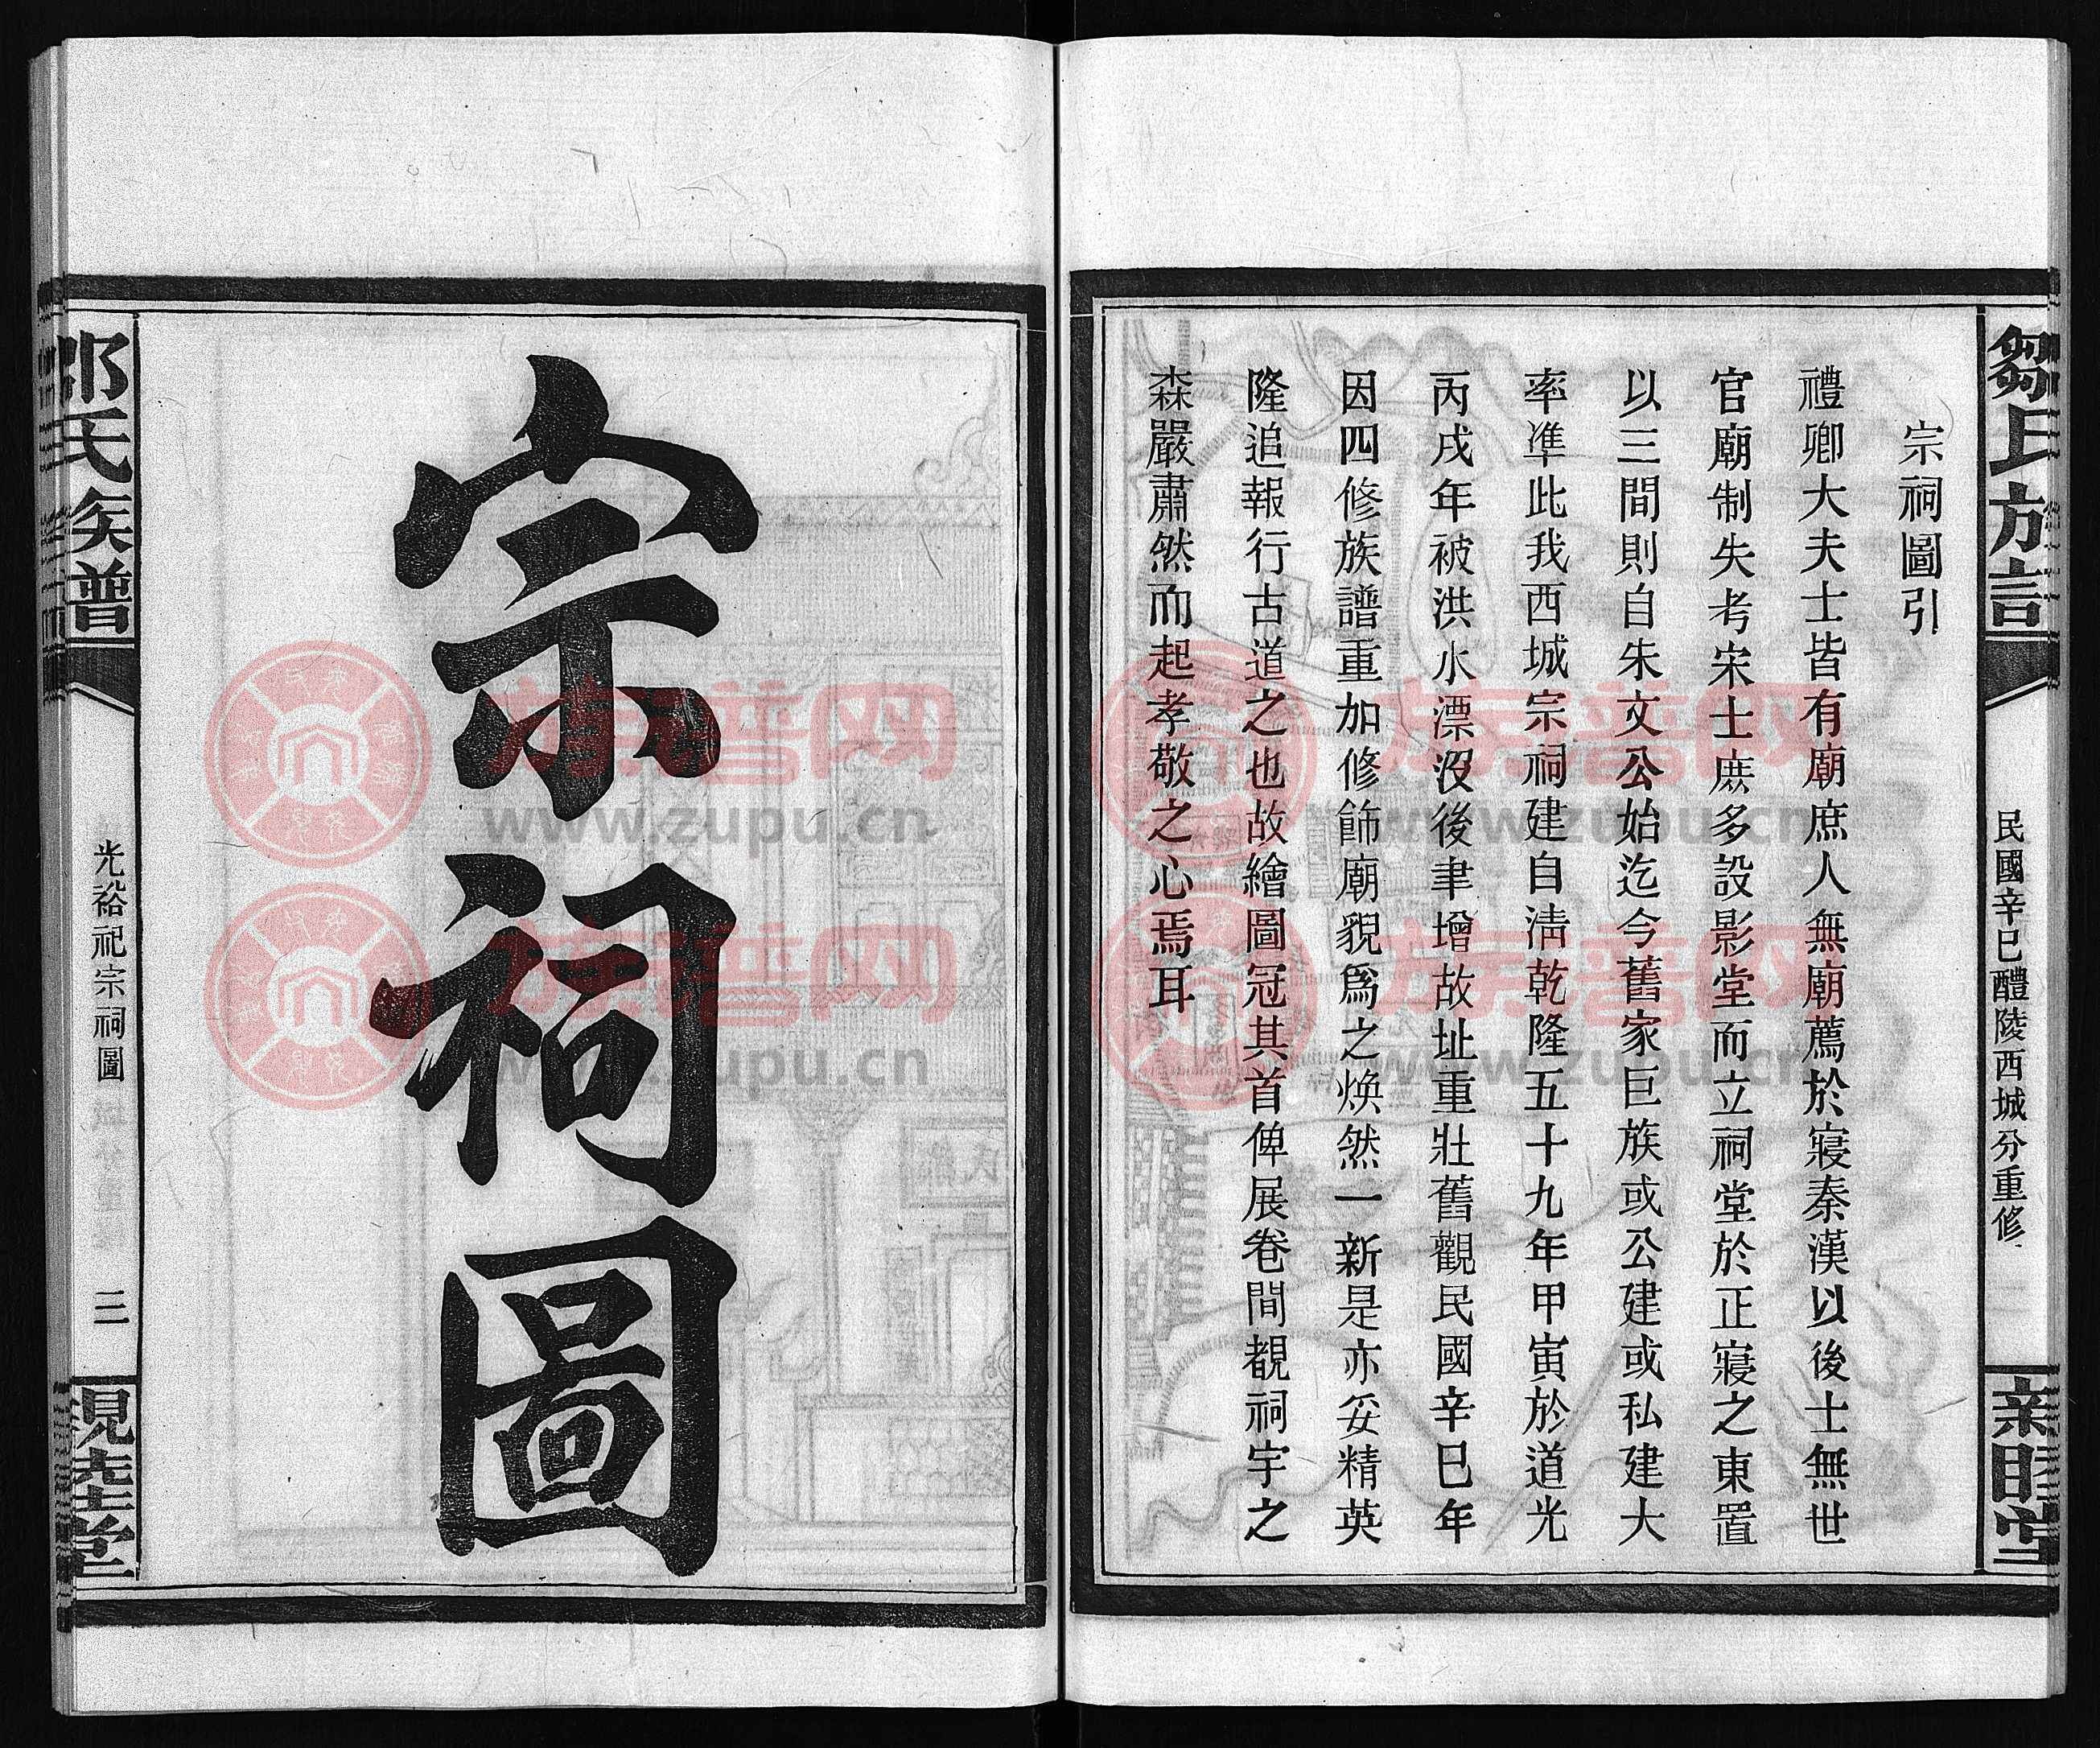 鄒氏族譜
民國辛巳醴陵西城分重修
親睦堂
宗祠圖引
禮卿大夫士皆有廟庶人無廟薦於寢秦漢以後士無世
官廟制失考宋士庶多設影堂而立祠堂於正寢之東置
以三間則自朱文公始迄今舊家巨族或公建或私建大
率準此我西城宗祠建自清乾隆五十九年甲寅於道光
丙戌年被洪水漂沒後聿增故址重壯舊觀民國辛巳年
因四修族譜重加修飾廟貌爲之煥然一新是亦妥精英
隆追報行古道之也故繪圖冠其首俾展卷間覩祠宇之
森嚴肅然而起孝敬之心焉耳
宗祠圖
鄒氏族譜
光裕祀宗祠圖
三
親睦堂
族譜网
www.zupu.cn
族譜网
www.zupu.cn
族譜网
www.zupu.cn
族譜网
www.zupu.cn